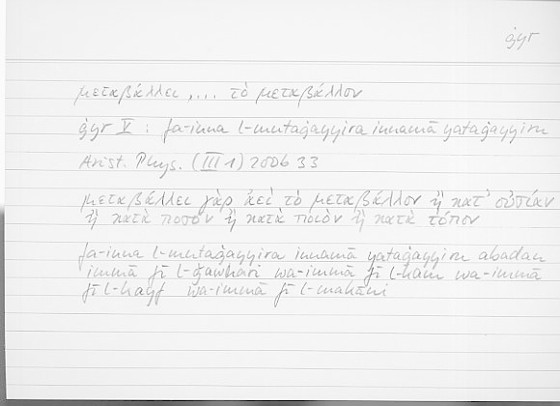 ġyr
μεταβάλλει ,... τὸ μεταβάλλον
ġyr V : fa-inna l-mutaġayyira innamā yataġayyiru
Arist. Phys. (III 1) 200b 33
μεταβάλλει γὰρ ἀεὶ τὸ μεταβάλλον ἢ κατ' οὐσίαν
ἢ κατὰ ποσὸν ἢ κατὰ ποιὸν ἢ κατὰ τόπον
fa-inna l-mutaġayyira innamā yataġayyiru abadan
immā fī l-ǧawhari wa-immā fī l-kam wa-immā
fī l-kayf wa-immā fī l-makāni